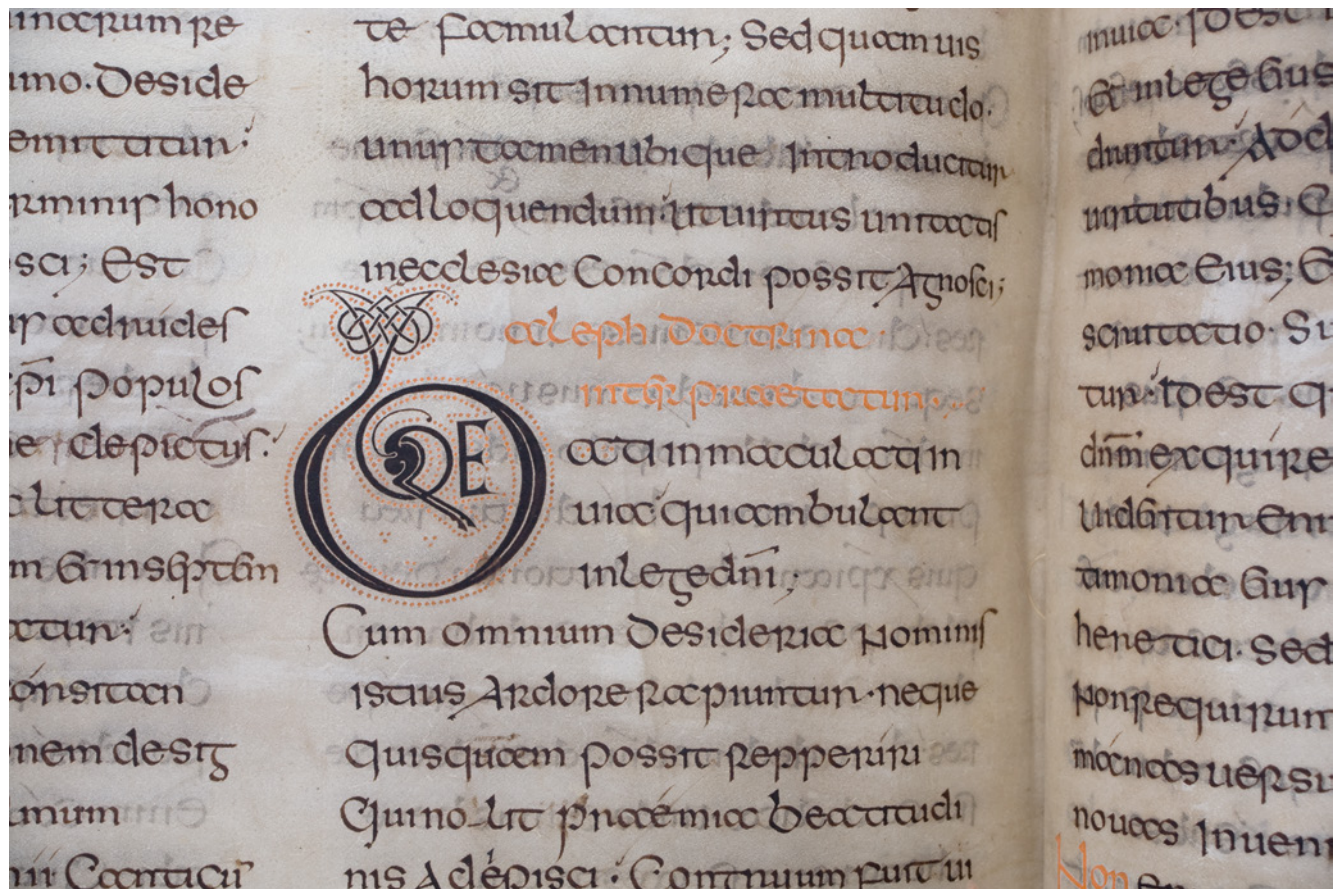 inarum re
imo. Deside
emittitur:
rminis hono
sci; Est
ur ad rudes
p̄i populos
e depictus:
littera
atur:
onsitan
nem desig
minum
te famulantur; Sed quamuis
horum sit innumera multitudo.
unus tamen ubique introducitur
ad loquendum ut uirtus unitatis
in ecclesia Concordi possit Agnosci;
aleph Doctrina
intꝑpraetatur
BE
ati in maculati in
uia qui ambulant
in lege dn̄i;
Cum omnium Desideria Nominis
istius Ardore rapiuntur. neque
Quisquam possit repperiri
Qui nolit praemia beatitudi
nis Adepisci. Continuum fuit ut
inuia. Id est
Et in lege eius
diuntur.
uirtutibus.
monia Eius;
scrutatio. Su
tur. id est q
dnm̄ exquire
timonia eius
heretici. Sed
Non requirunt
uersu
inueni
Non